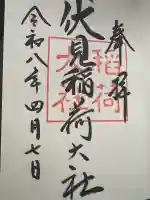 奉拝
伏見稲荷大社
令和八年四月七日
稲荷
大社